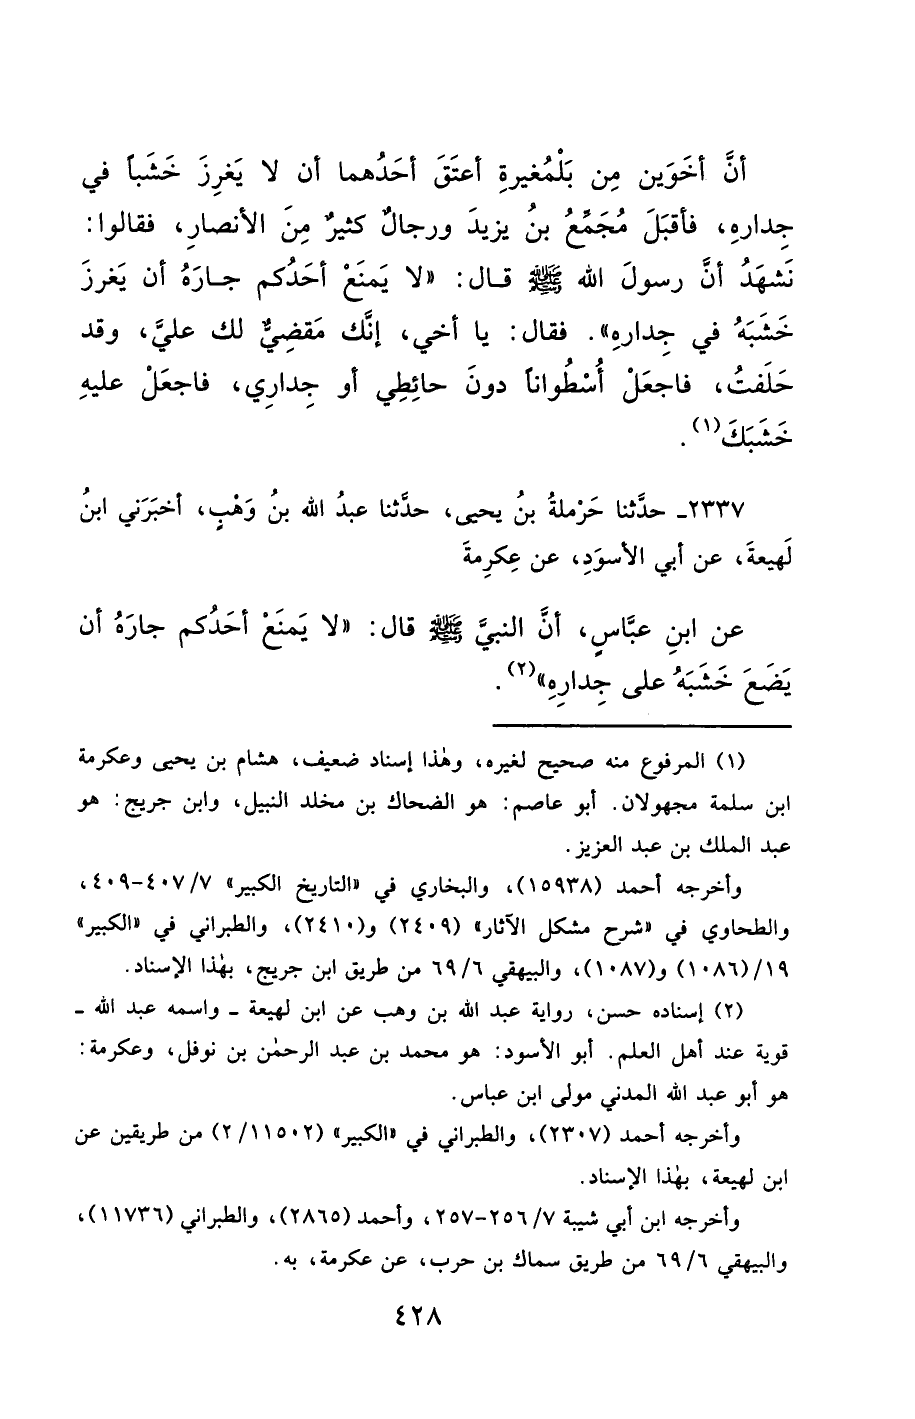 أنَّ أخَوَين مِن بَلْمُغيرةِ أعتَقَ أحَدُهما أن لا يَغرِزَ خَشَباً في
جِدارهِ، فأقبَلَ مُجَمِّعُ بنُ يزيدَ ورجالٌ كثيرٌ مِنَ الأنصارِ، فقالوا:
نَشهَدُ أنَّ رسولَ الله ﷺ قـال: «لا يَمنَعْ أحَدُكم جـارَهُ أن يَغرزَ
خَشَبَهُ في جِدارهِ». فقال: يا أخي، إنَّك مَقضِيٌّ لك عليَّ، وقد
حَلَفتُ، فاجعَلْ أُسْطُواناً دونَ حائِطِي أو جِدارِي، فاجعَلْ عليهِ
خَشَبَكَ(١).
٢٣٣٧ـ حدَّثنا حَرْملةُ بنُ يحيى، حدَّثنا عبدُ الله بنُ وَهْبٍ، أخبَرَني ابنُ
لَهيعةَ، عن أبي الأسوَدِ، عن عِكرِمةَ
عن ابنِ عبَّاسٍ، أنَّ النبيَّ ﷺ قال: «لا يَمنَعْ أحَدُكم جارَهُ أن
يَضَعَ خَشَبَهُ على جِدارِهِ»(٢).
(١) المرفوع منه صحيح لغيره، وهٰذا إسناد ضعيف، هشام بن يحيى وعكرمة
ابن سلمة مجهولان. أبو عاصم: هو الضحاك بن مخلد النبيل، وابن جريج: هو
عبد الملك بن عبد العزيز.
وأخرجه أحمد (١٥٩٣٨)، والبخاري في «التاريخ الكبير» ٤٠٧/٧-٤٠٩،
والطحاوي في «شرح مشكل الآثار» (٢٤٠٩) و(٢٤١٠)، والطبراني في «الكبير»
١٩/(١٠٨٦) و(١٠٨٧)، والبيهقي ٦٩/٦ من طريق ابن جريج، بهٰذا الإسناد.
(٢) إسناده حسن، رواية عبد الله بن وهب عن ابن لهيعة ـ واسمه عبد الله ـ
قوية عند أهل العلم. أبو الأسود: هو محمد بن عبد الرحمٰن بن نوفل، وعكرمة:
هو أبو عبد الله المدني مولى ابن عباس.
وأخرجه أحمد (٢٣٠٧)، والطبراني في «الكبير» (٢/١١٥٠٢) من طريقين عن
ابن لهيعة، بهٰذا الإسناد.
وأخرجه ابن أبي شيبة ٢٥٦/٧-٢٥٧، وأحمد (٢٨٦٥)، والطبراني (١١٧٣٦)،
والبيهقي ٦٩/٦ من طريق سماك بن حرب، عن عكرمة، به.
٤٢٨